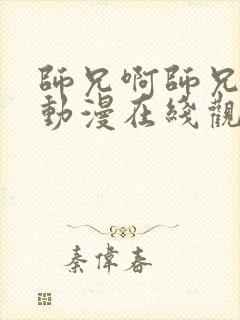 師兄啊師兄
動漫在綫觀
秦偉春